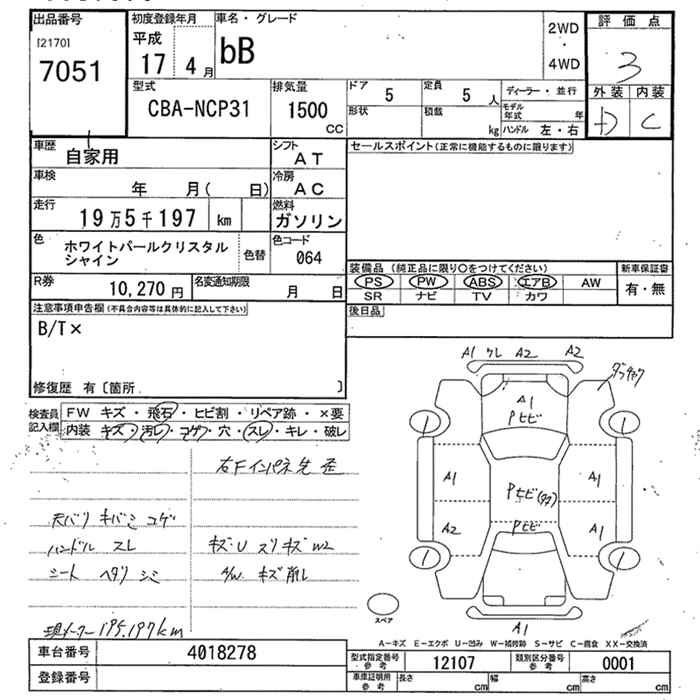 出品番号
[2170]
7051
初度登録年月
平成
17 4月
車名・グレード
bB
2WD
・
4WD
評価点
3
外装 内装
D C
型式
CBA-NCP31
排気量
1500
CC
ドア
5
定員
5 人
形状
積載
kg
ディーラー・並行
モデル年式 年
ハンドル 左・右
車歴
自家用
シフト
AT
車検
年 月( 日)
冷房
AC
走行
19万5千197 km
燃料
ガソリン
色
ホワイトパールクリスタル
シャイン
色替
色コード
064
R券
10,270円
名変通知期限
月 日
セールスポイント(正常に機能するものに限ります)
装備品 (純正品に限り○をつけてください)
新車保証書
PS PW ABS エアB AW
有・無
SR ナビ TV カワ
後日品
注意事項申告欄(不具合内容等は具体的に記入して下さい)
B/T×
修復歴 有〔箇所 〕
検査員
記入欄
FW キズ・飛石・ヒビ割・リペア跡・×要
内装 キズ・汚レ・コゲ・穴・スレ・キレ・破レ
右Fインパネ先歪
天バリ キバミ コゲ
ハンドル スレ
キズ・U スリキズW2
シート ヘタリ シミ
A/W キズ 削レ
現メーター195.197km
A1 ワレ A2 A2
A1
Pヒビ
A1
Pヒビ(タタ)
A1
A2
Pヒビ
A1
A1
スペア
A-キズ E-エクボ U-凹み W-補修跡 S-サビ C-腐食 XX-交換済
車台番号
4018278
登録番号
型式指定番号
参考
12107
類別区分番号
参考
0001
車庫証明用
参考
長さ cm
幅 cm
高さ cm